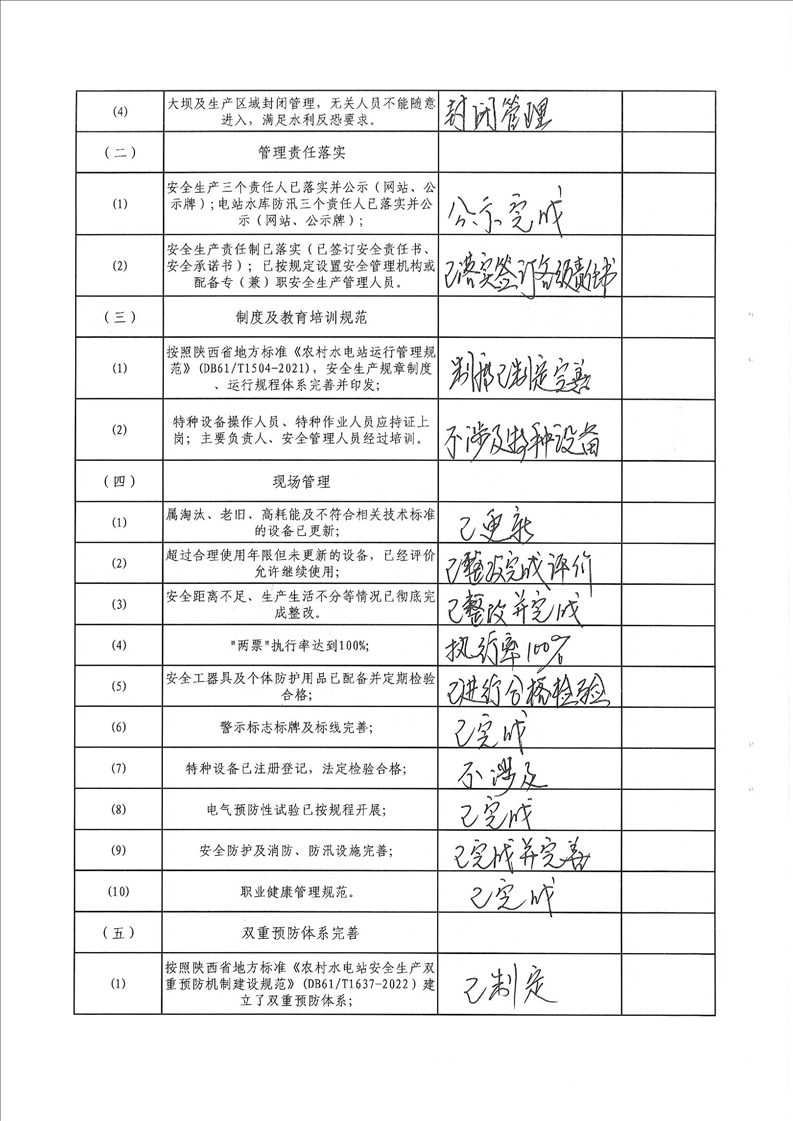 (4)
大坝及生产区域封闭管理，无关人员不能随意
进入，满足水利反恐要求。
封闭管理
（二）
管理责任落实
(1)
安全生产三个责任人已落实并公示（网站、公
示牌）;电站水库防汛三个责任人已落实并公
示（网站、公示牌）;
公示完成
(2)
安全生产责任制已落实（已签订安全责任书、
安全承诺书）；已按规定设置安全管理机构或
配备专（兼）职安全生产管理人员。
已落实签订各级责任书
（三）
制度及教育培训规范
(1)
按照陕西省地方标准《农村水电站运行管理规
范》(DB61/T1504-2021)，安全生产规章制度
、运行规程体系完善并印发;
制度已制定完善
(2)
特种设备操作人员、特种作业人员应持证上
岗；主要负责人、安全管理人员经过培训。
不涉及特种设备
（四）
现场管理
(1)
属淘汰、老旧、高耗能及不符合相关技术标准
的设备已更新;
已更新
(2)
超过合理使用年限但未更新的设备，已经评价
允许继续使用;
已整改完成评价
(3)
安全距离不足、生产生活不分等情况已彻底完
成整改。
已整改并完成
(4)
"两票"执行率达到100%;
执行率100%
(5)
安全工器具及个体防护用品已配备并定期检验
合格;
已进行合格检验
(6)
警示标志标牌及标线完善;
已完成
(7)
特种设备已注册登记，法定检验合格;
不涉及
(8)
电气预防性试验已按规程开展;
已完成
(9)
安全防护及消防、防汛设施完善;
已完成并完善
(10)
职业健康管理规范。
已完成
（五）
双重预防体系完善
(1)
按照陕西省地方标准《农村水电站安全生产双
重预防机制建设规范》(DB61/T1637-2022）建
立了双重预防体系;
已制定